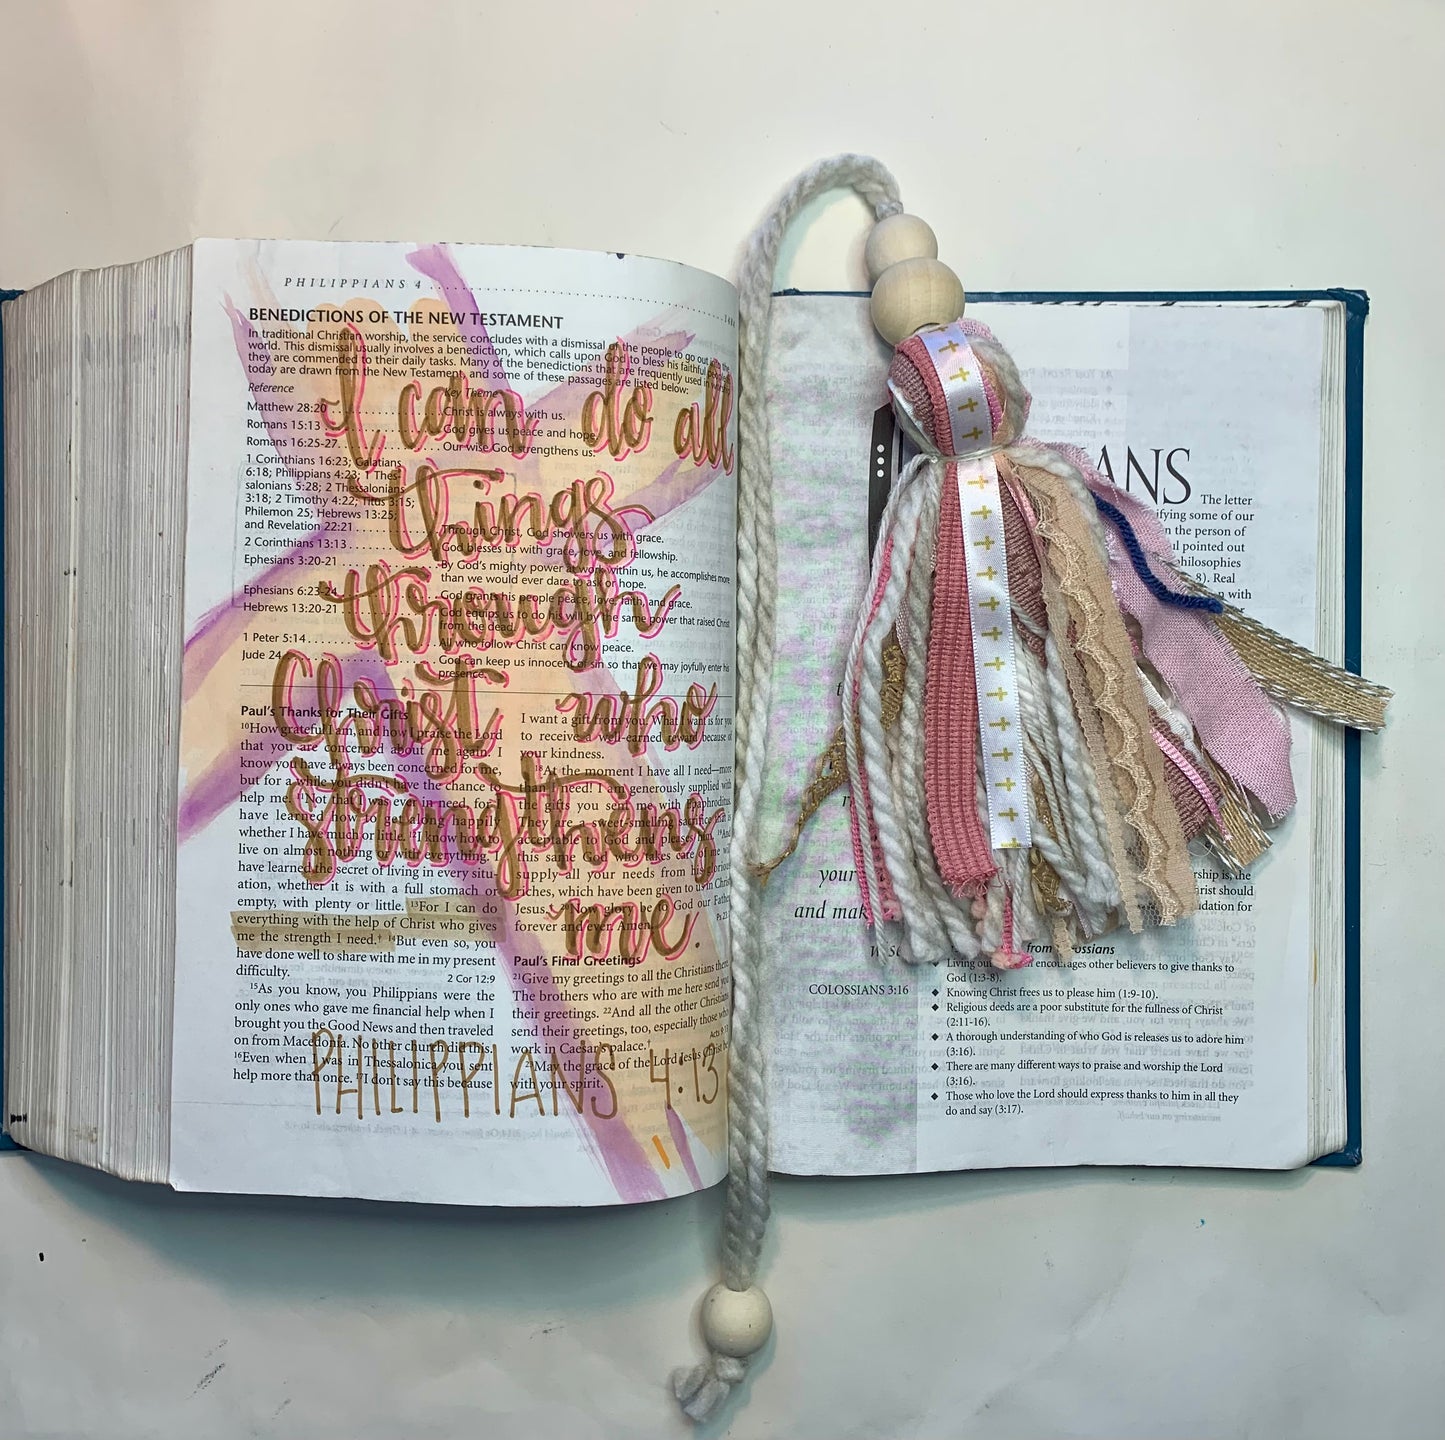 PHILIPPIANS 4
BENEDICTIONS OF THE NEW TESTAMENT
In traditional Christian worship, the service concludes with a dismissal of the people to go out into the
world. This dismissal usually involves a benediction, which calls upon God to bless his faithful people as
they are commended to their daily tasks. Many of the benedictions that are frequently used in worship
today are drawn from the New Testament, and some of these passages are listed below:
Reference Key Theme
Matthew 28:20 Christ is always with us.
Romans 15:13 God gives us peace and hope.
Romans 16:25-27 Our wise God strengthens us.
1 Corinthians 16:23; Galatians
6:18; Philippians 4:23; 1 Thes-
salonians 5:28; 2 Thessalonians
3:18; 2 Timothy 4:22; Titus 3:15;
Philemon 25; Hebrews 13:25;
and Revelation 22:21 Through Christ, God showers us with grace.
2 Corinthians 13:13 God blesses us with grace, love, and fellowship.
Ephesians 3:20-21 By God's mighty power at work within us, he accomplishes more
than we would ever dare to ask or hope.
Ephesians 6:23-24 God grants his people peace, love, faith, and grace.
Hebrews 13:20-21 God equips us to do his will by the same power that raised Christ
from the dead.
1 Peter 5:14 All who follow Christ can know peace.
Jude 24 God can keep us innocent of sin so that we may joyfully enter his
presence.
I can do all
things
through
Christ who
strengthens
me.
PHILIPPIANS 4:13
Paul's Thanks for Their Gifts
10How grateful I am, and how I praise the Lord
that you are concerned about me again. I
know you have always been concerned for me,
but for a while you didn't have the chance to
help me. 11Not that I was ever in need, for I
have learned how to get along happily
whether I have much or little. 12I know how to
live on almost nothing or with everything. I
have learned the secret of living in every situ-
ation, whether it is with a full stomach or
empty, with plenty or little. 13For I can do
everything with the help of Christ who gives
me the strength I need.† 14But even so, you
have done well to share with me in my present
difficulty.
2 Cor 12:9
15As you know, you Philippians were the
only ones who gave me financial help when I
brought you the Good News and then traveled
on from Macedonia. No other church did this.
16Even when I was in Thessalonica you sent
help more than once. 17I don't say this because
I want a gift from you. What I want is for you
to receive a well-earned reward because of
your kindness.
18At the moment I have all I need—more
than I need! I am generously supplied with
the gifts you sent me with Epaphroditus.
They are a sweet-smelling sacrifice that is
acceptable to God and pleases him. 19And
this same God who takes care of me will
supply all your needs from his glorious
riches, which have been given to us in Christ
Jesus. 20Now glory be to God our Father
forever and ever. Amen.
Paul's Final Greetings
21Give my greetings to all the Christians there.
The brothers who are with me here send you
their greetings. 22And all the other Christians
send their greetings, too, especially those who
work in Caesar's palace.†
23May the grace of the Lord Jesus Christ be
with your spirit.
your
and mak
COLOSSIANS 3:16
IANS The letter
ifying some of our
n the person of
pointed out
philosophies
8). Real
with
rship is, the
rist should
dation for
from
ossians
Living out encourages other believers to give thanks to
God (1:3-8).
Knowing Christ frees us to please him (1:9-10).
Religious deeds are a poor substitute for the fullness of Christ
(2:11-16).
A thorough understanding of who God is releases us to adore him
(3:16).
There are many different ways to praise and worship the Lord
(3:16).
Those who love the Lord should express thanks to him in all they
do and say (3:17).